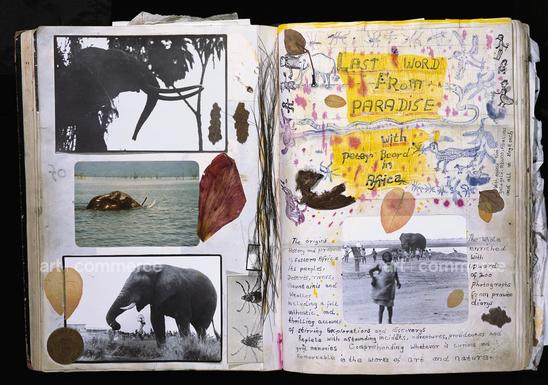 art+commerce
art+commerce
LAST WORD
FROM
PARADISE
with
Peter Beard
in
Africa
and all in English
The origins
History and
of Eastern Africa
its peoples,
Deserts, rivers,
Mountains and
Weather
including a full
authentic, and
thrilling account
of stirring explorations and discoverys
Replete with astounding incidents, adventures, providences and
grim memories Comprehending whatever is curious and
Remarkable in the works of art and nature
The whole
enriched
with
upward
of 200
photographs
from
diary
art+commerce
art+commerce